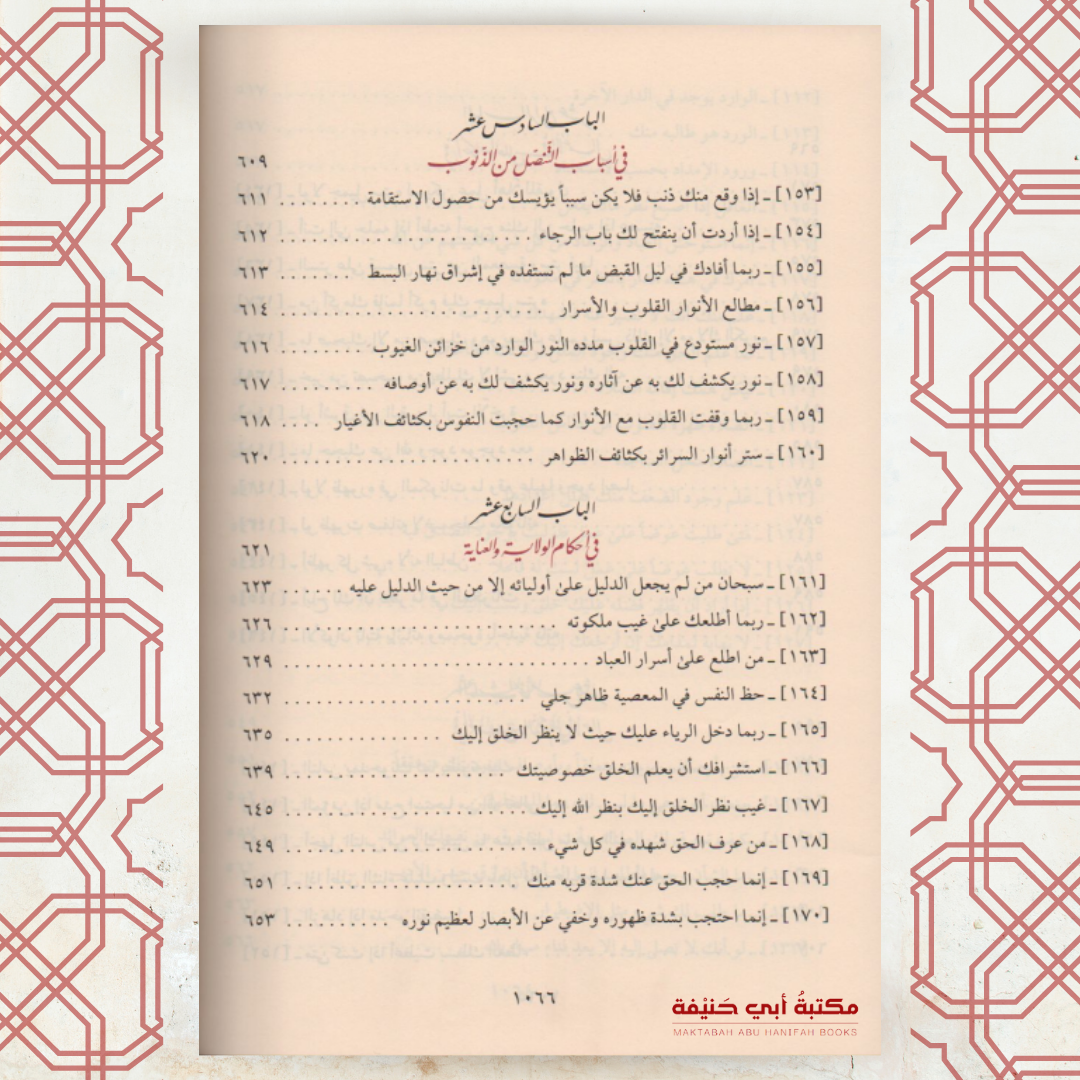 الباب السادس عشر
في أسباب التنصل من الذنوب ٦٠٩
[١٥٣] ـ إذا وقع منك ذنب فلا يكن سبباً يؤيسك من حصول الاستقامة ......... ٦١١
[١٥٤] ـ إذا أردت أن ينفتح لك باب الرجاء ......................... ٦١٢
[١٥٥] ـ ربما أفادك في ليل القبض ما لم تستفده في إشراق نهار البسط ....... ٦١٣
[١٥٦] ـ مطالع الأنوار القلوب والأسرار ......................... ٦١٤
[١٥٧] ـ نور مستودع في القلوب مدده النور الوارد من خزائن الغيوب ......... ٦١٦
[١٥٨] ـ نور يكشف لك به عن آثاره ونور يكشف لك به عن أوصافه ......... ٦١٧
[١٥٩] ـ ربما وقفت القلوب مع الأنوار كما حجبت النفوس بكثائف الأغيار .... ٦١٨
[١٦٠] ـ ستر أنوار السرائر بكثائف الظواهر ......................... ٦٢٠
الباب السابع عشر
في أحكام الولاية والعناية ٦٢١
[١٦١] ـ سبحان من لم يجعل الدليل علىٰ أوليائه إلا من حيث الدليل عليه ....... ٦٢٣
[١٦٢] ـ ربما أطلعك علىٰ غيب ملكوته ......................... ٦٢٦
[١٦٣] ـ من اطلع علىٰ أسرار العباد ............................. ٦٢٩
[١٦٤] ـ حظ النفس في المعصية ظاهر جلي ....................... ٦٣٢
[١٦٥] ـ ربما دخل الرياء عليك حيث لا ينظر الخلق إليك ................ ٦٣٥
[١٦٦] ـ استشرافك أن يعلم الخلق خصوصيتك ..................... ٦٣٩
[١٦٧] ـ غيب نظر الخلق إليك بنظر الله إليك ....................... ٦٤٥
[١٦٨] ـ من عرف الحق شهده في كل شيء ....................... ٦٤٩
[١٦٩] ـ إنما حجب الحق عنك شدة قربه منك ....................... ٦٥١
[١٧٠] ـ إنما احتجب بشدة ظهوره وخفي عن الأبصار لعظيم نوره ........... ٦٥٣
١٠٦٦
مكتبةُ أبي حَنيْفة
MAKTABAH ABU HANIFAH BOOKS